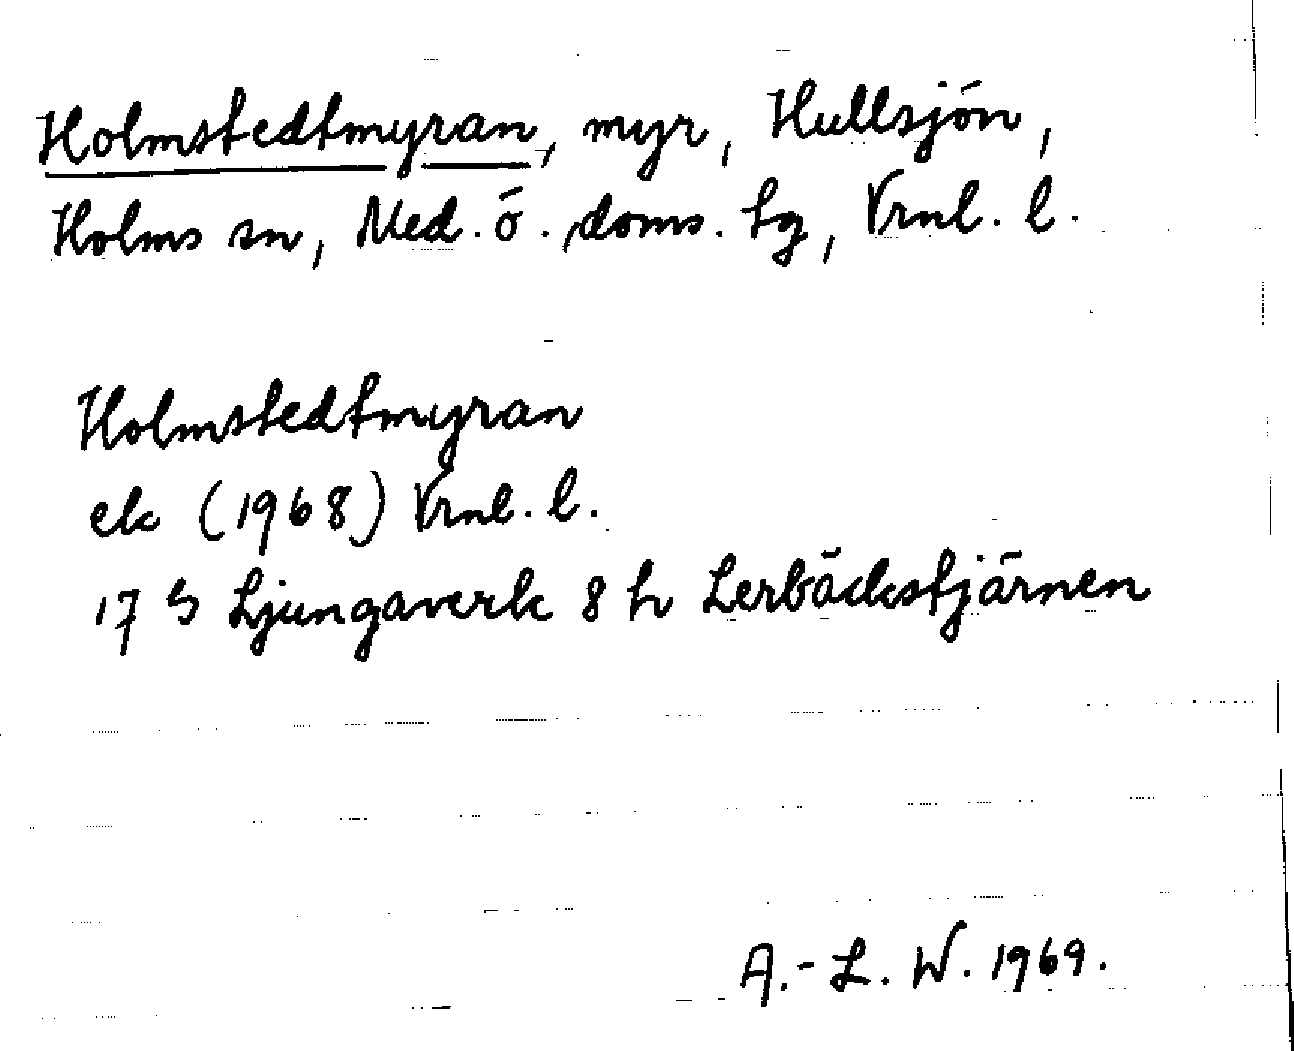 Holmstedtmyran, myr, Hullsjön,
Holms sn, Med. ö. doms. tg, Vrnl. l.
Holmstedtmyran
ek (1968) Vrnl. l.
17 G Ljungaverk 8 h Lerbäckstjärnen
A.-L. W. 1969.